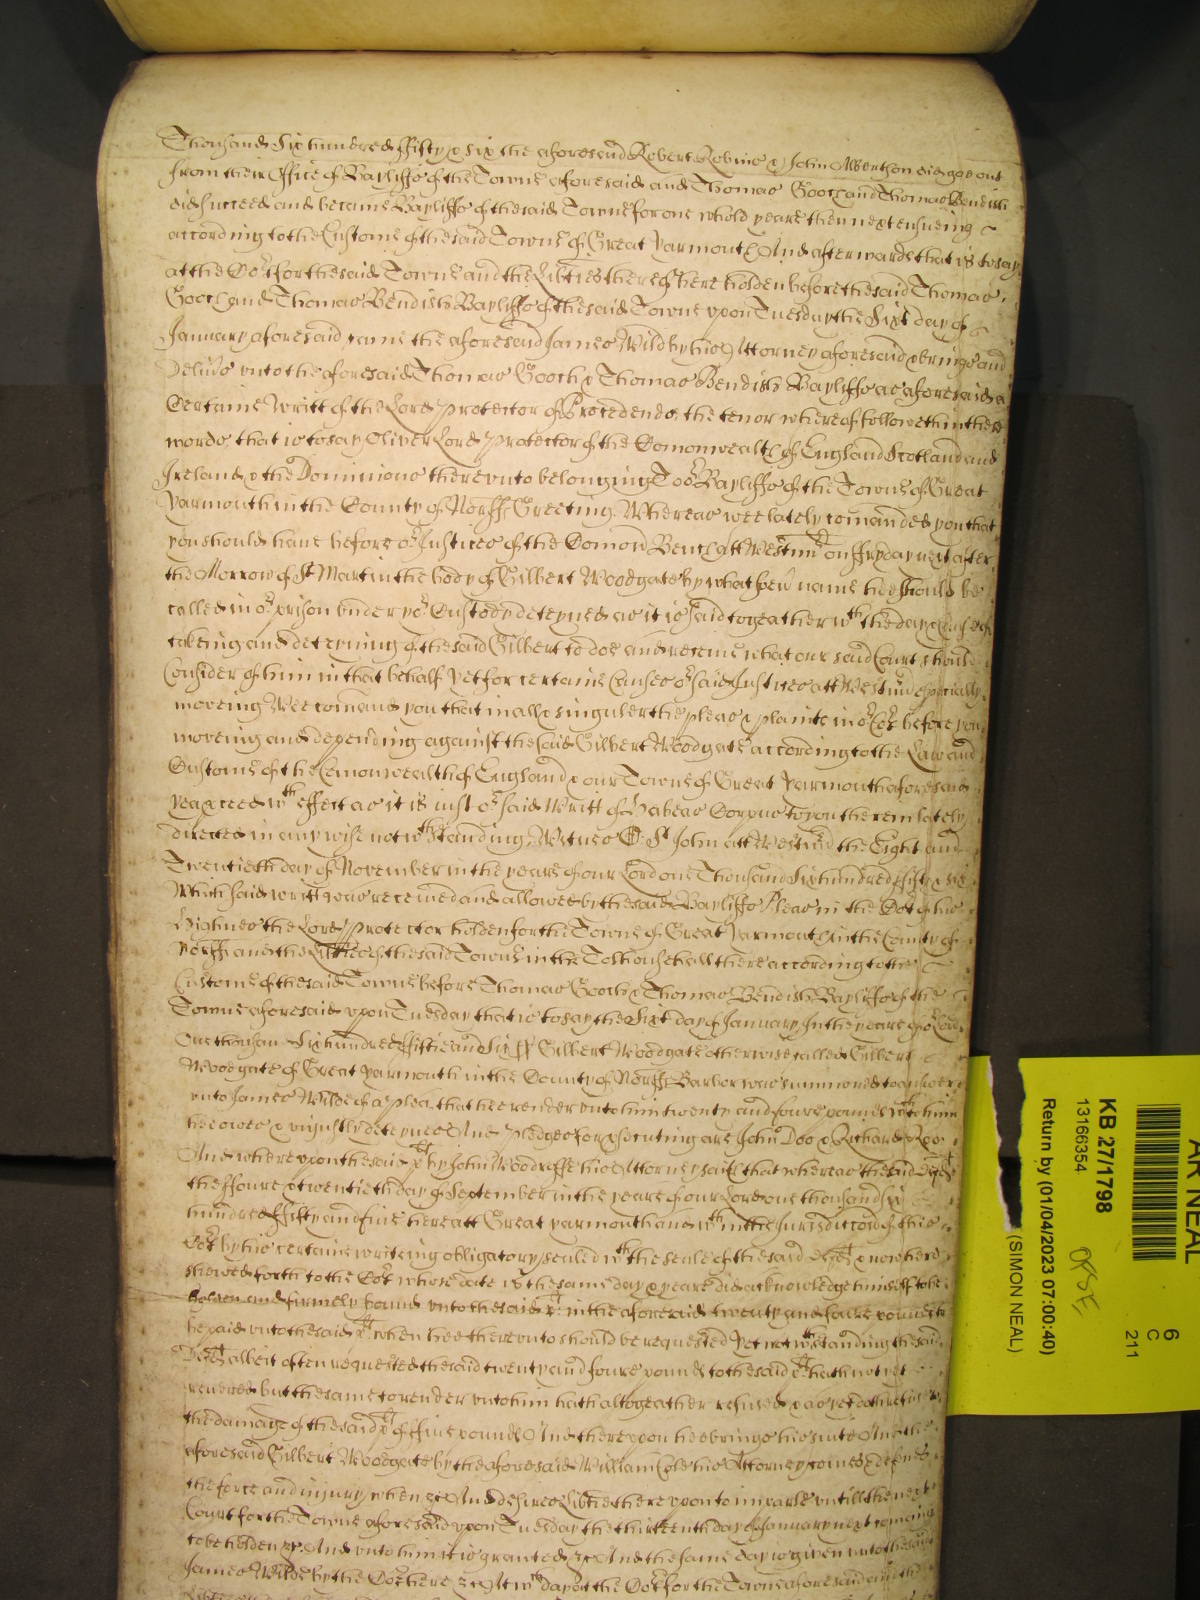 Thousand Six hundred ffifty & six the aforesaid Robert Robins & John Albertson did goe out
from their Office of Bayliffs of the Towne aforesaid and Thomas Gooch and Thomas Bendish
did succeed and became Bayliffs of the said Towne for one whole yeare then next ensueing
according to the Custome of the said Towne of Great Yarmouth And afterwards that is to say
at the Cot for the said Towne and the Libties thereof here holden before the said Thomas
Gooch and Thomas Bendish Bayliffs of the said Towne upon Tuesday the Sixt day of
January aforesaid came the aforesaid James Wild by his Attorney aforesaid & brings and
Delivs unto the aforesaid Thomas Gooch & Thomas Bendish Bayliffs as aforesaid a
Certaine Writt of the Lord Protector of Procedendo the tenor whereof followeth in these
words that is to say Oliver Lord Protector of the Comonwealth of England Scotland and
Ireland & the Dominions thereunto belonging To or Bayliffs of the Towne of Great
Yarmouth in the County of Norff Greeting Whereas wee lately comanded you that
you should have before or Justices of the Comon Bench att Westmr on ffryday next after
the Morrow of St Martin the body of Gilbert Woodgate by what name hee should be
called in or prison under yor Custody deteyned as it is said togeather wth the day &
takeing and deteyning of the said Gilbert to doe and receive what our said Court should
Consider of him in that behalf Yet for certaine Causes or said Justices att Westmr especially
moveing Wee comand you that in all & singuler the pleas & plaints in or Cot before you
moveing and depending against the said Gilbert Woodgate according to the Law and
Custome of the Comonwealth of England & our Towne of Great Yarmouth aforesaid
yea pceed wth effect as it is just or said Writt of Habeas Corpus to you therein lately
directed in any wise notwthstanding Witnes O: St John att Westmr the Eight and
Twentieth day of November in the yeare of our Lord one Thousand Six hundred ffifty & six
Which said writt was received and allowed by the said Bayliffs Pleas in the Cot of his
Highnes the Lord Protector holden for the Towne of Great Yarmouth in the County of
Norff and the Libties of the said Towne in the Tolhouse hall there according to the
Custome of the said Towne before Thomas Gooch & Thomas Bendish Bayliffs of the
Towne aforesaid upon Tuesday that is to say the Sixt day of January In the yeare of or Lord
One thousan Six hundred ffiftie and Six ss Gilbert Woodgate otherwise called Gilbert
Woodgate of Great Yarmouth in the County of Norff Barbor was summoned to answere
unto James Wilde of a plea that hee render unto him twenty and foure pounds wch to him
hee owes & unjustly deteynes And pledges for psecuting are John Doo & Richard Roo
And whereupon the said plt by John Woodroffe his Attorney saith that whereas the said Defft
the ffoure & twentieth day of September in the yeare of our Lord one thousand six
hundred ffifty and five here att Great Yarmouth and wthin the Jurisdiccon of this
Cot by his certaine writeing obligatory sealed wth the seale of the said Defft & now here
shewed forth to the Cot whose date is the same day & yeare did acknowledge himself to be
holden and firmely bound unto the said plt in the aforesaid twenty and foure pounds to
be paid unto the said plt when hee thereunto should be requested Yet notwthstanding the said
Defft albeit often requested the said twenty and foure pounds to the said plt hath not yet
rendred but the same to render unto him hath altogeather refused & as yet doth refuse to
the damage of the said plt of ffive pounds And thereupon hee brings his suite And the
aforesaid Gilbert Woodgate by the aforesaid William Cole his Attorney comes & defends
the force and injury when &c And desires Libtie thereupon to imparle untill the next
Court for the Towne aforesaid upon Tuesday the thirteenth day of January next comeing
to be holden &c And unto him it is granted &c And the same day is given unto the said
James Wilde by the Cot here &c Att wch day att the Cot for the Towne aforesaid and the
AR NEAL
KB 27/1798
13186354
Return by (01/04/2023 07:00:40)
(SIMON NEAL)
6
C
211